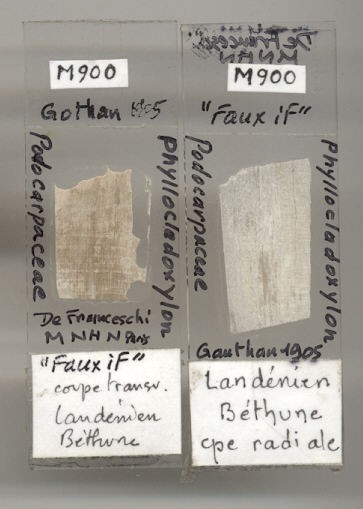 M900
Gothan
Podocarpaceae
Phyllocladoxylon
De Franceschi
M N H N Paris
"Faux iF"
coupe transv.
Landénien
Béthune
De Franceschi
M N H N
M900
"Faux iF"
Podocarpaceae
Phyllocladoxylon
Gauthan 1905
Landénien
Béthune
cpe radiale